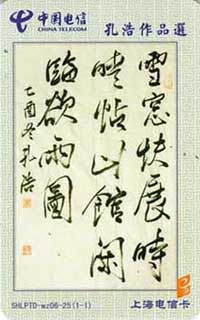 中国电信
CHINA TELECOM
孔浩作品選
雪窓快展時
晴帖山館閑
臨欲雨圖
乙酉冬孔浩
SHLPTD-wz06-25(1-1)
上海电信卡